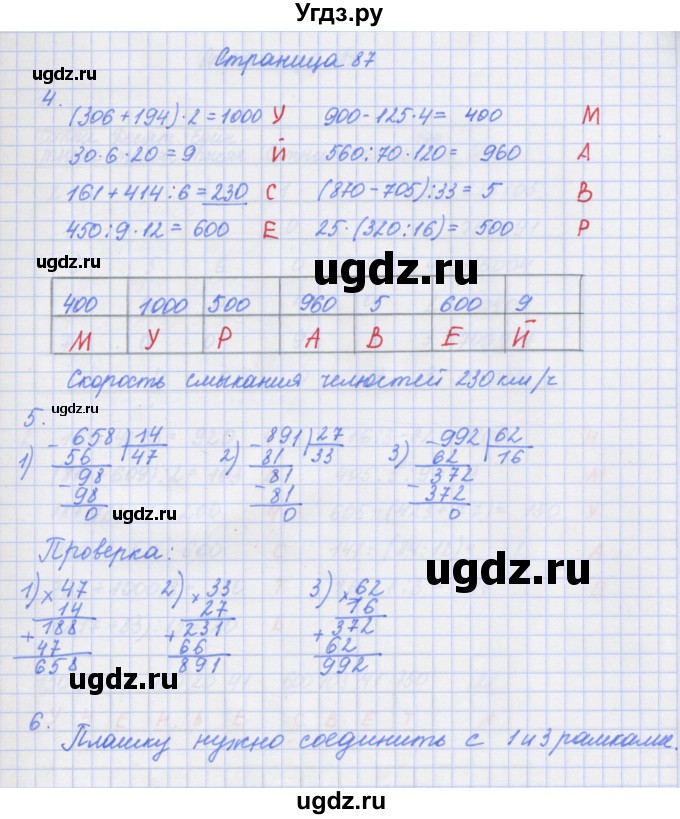 Угдз.ру
Страница 87
4.
(306+194)·2=1000 У 900-125·4= 400 М
30·6·20=9 Й 560:70·120= 960 А
161+414:6=230 С (870-705):33=5 В
450:9·12=600 Е 25·(320:16)= 500 Р
400 1000 500 960 5 600 9
М У Р А В Е Й
Скорость смыкания челюстей 230 км/ч
5.
1) -658 14 2) -891 27 3) -992 62
56 47 81 33 62 16
-98 -81 -372
98 81 372
0 0 0
Проверка:
1) ×47 2) ×33 3) ×62
14 27 16
+188 +231 +372
47 66 62
658 891 992
6.
Плашку нужно соединить с 1 и 3 рамками.
ugdz.ru
ugdz.ru
ugdz.ru
ugdz.ru
ugdz.ru
ugdz.ru
ugdz.ru
ugdz.ru
ugdz.ru
ugdz.ru